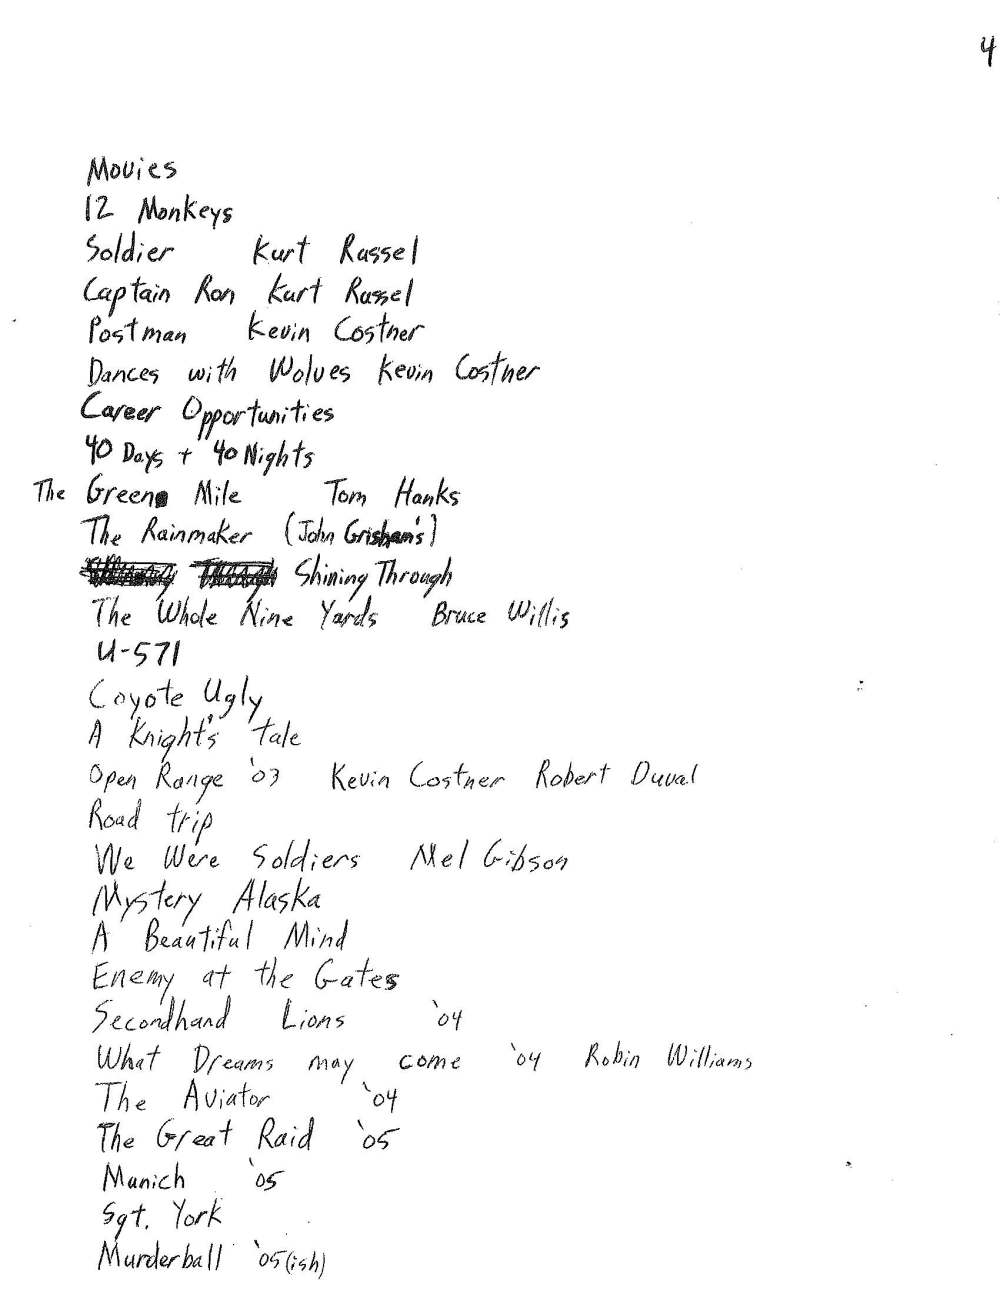 4
Movies
12 Monkeys
Soldier Kurt Russel
Captain Ron Kurt Russel
Postman Kevin Costner
Dances with Wolves Kevin Costner
Career Opportunities
40 Days + 40 Nights
The Green Mile Tom Hanks
The Rainmaker (John Grisham's)
Shining Through
The Whole Nine Yards Bruce Willis
U-571
Coyote Ugly
A Knight's tale
Open Range '03 Kevin Costner Robert Duval
Road trip
We Were Soldiers Mel Gibson
Mystery Alaska
A Beautiful Mind
Enemy at the Gates
Secondhand Lions '04
What Dreams may come '04 Robin Williams
The Aviator '04
The Great Raid '05
Munich '05
Sgt. York
Murderball '05(ish)